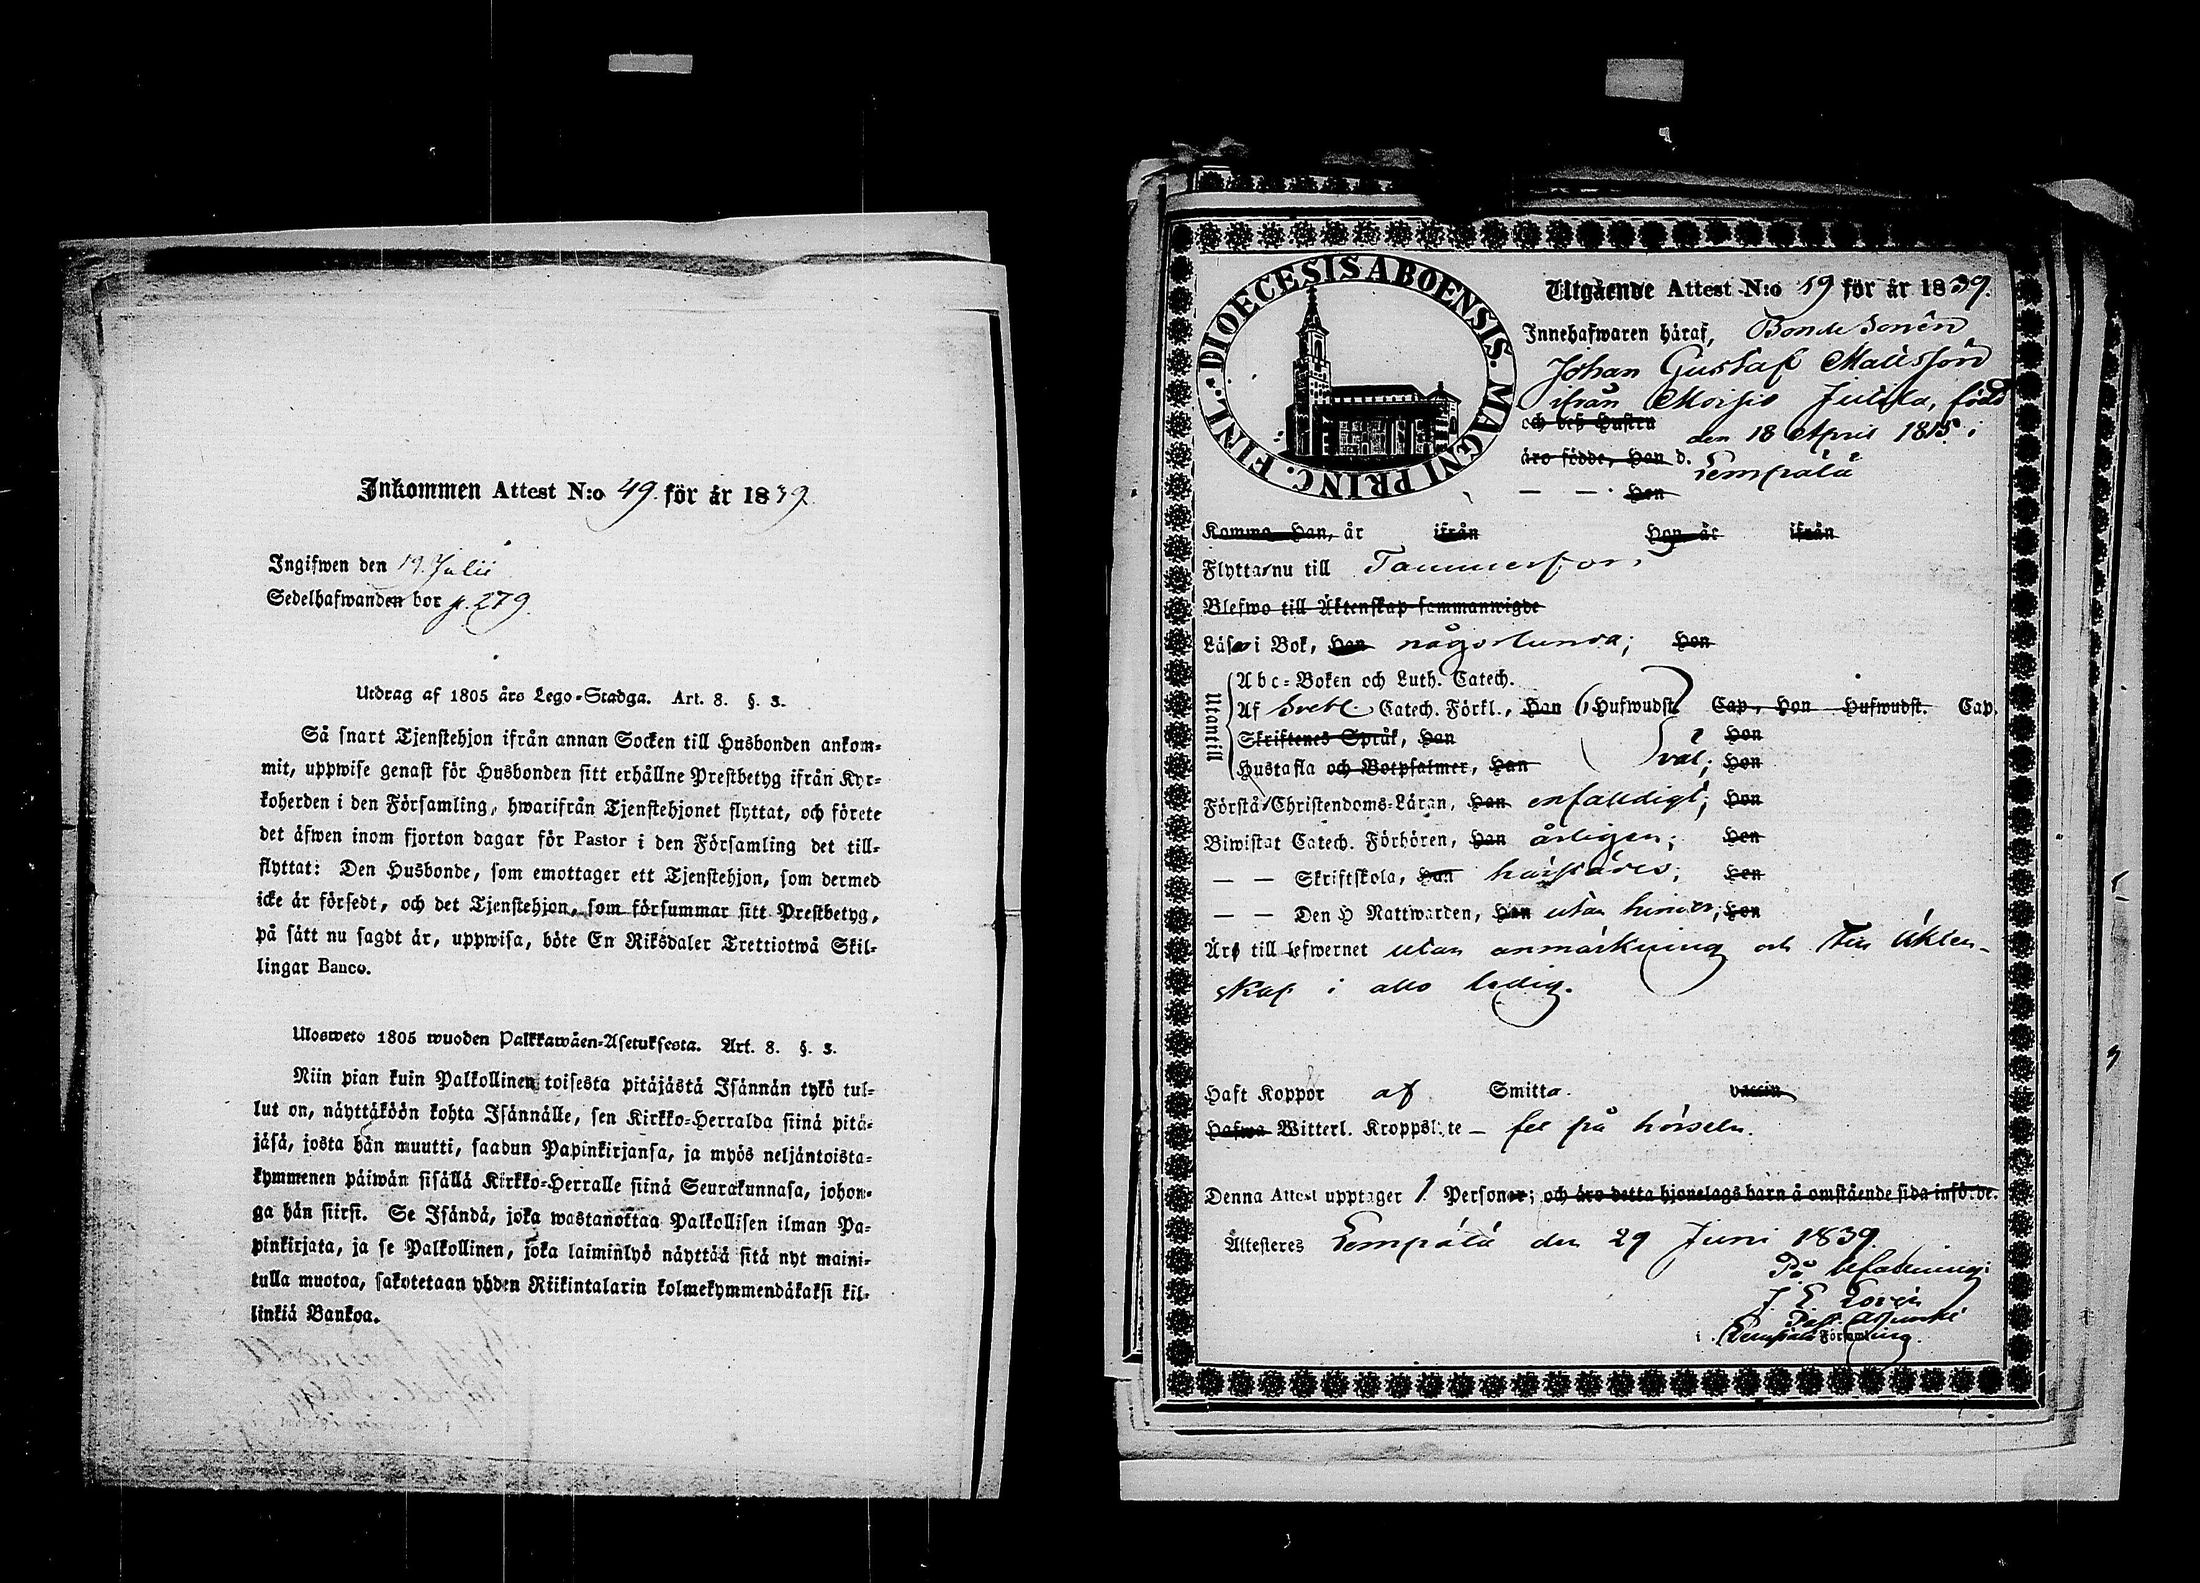 Inkommen Attest N:o 49. för år 1839.
Ingifwen den 19. Julii
Sedelhafwanden bor p. 279.
Utdrag af 1805 års Lego-Stadga. Art. 8. §. 3.
Så snart Tjenstehjon ifrån annan Socken till Husbonden ankom-
mit, uppwise genast för Husbonden sitt erhållne Prestbetyg ifrån Kyr-
koherden i den Församling, hwarifrån Tjenstehjonet flyttat, och förete
det äfwen inom fjorton dagar för Pastor i den Församling det till-
flyttat: Den Husbonde, som emottager ett Tjenstehjon, som dermed
icke är försedt, och det Tjenstehjon, som försummar sitt Prestbetyg,
på sätt nu sagdt är, uppwisa, böte En Riksdaler Trettiotwå Skil-
lingar Banco.
Ulosweto 1805 wuoden Palkkawäen-Asetuksesta. Art. 8. §. 3.
Niin pian kuin Palkollinen toisesta pitäjästä Isännän tykö tul-
lut on, näyttäköön kohta Isännälle, sen Kirkko-Herralda siinä pitä-
jäsä, josta hän muutti, saadun Papinkirjansa, ja myös neljäntoista-
kymmenen päiwän sisällä Kirkko-Herralle siinä Seurakunnasa, johon-
ga hän siirsi. Se Isändä, joka wastanottaa Palkollisen ilman Pa-
pinkirjata, ja se Palkollinen, joka laiminlyö näyttää sitä nyt maini-
tulla muotoa, sakotetaan yhden Riikintalarin kolmekymmendäkaksi kil-
linkiä Bankoa.
DIOECESIS ABOENSIS. MAGNI PRINC. FINL.
Utgående Attest N:o 59 för år 1839.
Innehafwaren häraf, Bondesonen
Johan Gustaf Mattsson
ifrån Moisio Jutila, född
och deß Hustru den 18 April 1815 i
äro födde, Han d. Lempälä
— — Hon
Komma Han, år ifrån Hon år ifrån
Flytta nu till Tammerfors
Blefwo till Äktenskap sammanwigde
Läsa i Bok, Han någorlunda; Hon
Utantill
Abc-Boken och Luth. Catech.
Af Sveb. Catech. Förkl., Han Hufwudst. Cap., Hon Hufwudst. Cap.
Skriftenes Språk, Han Hon
Hustafla och Botpsalmer, Han väl; Hon
Förstå Christendoms-Läran, Han enfalldigt; Hon
Biwistat Catech. Förhören, Han årligen; Hon
— — Skriftskola, Han härstädes; Hon
— — Den H Nattwarden, Han utan hinder; Hon
Äro till lefwernet utan anmärkning och till Äkten-
skap i allo ledig.
Haft Koppor af Smitta. vaccin
Hafwa Witterl. Kroppslyte — fel på hörseln.
Denna Attest upptager 1 Personer; och äro detta hjonelags barn å omstående sida införde.
Ältesteres Lempälä den 29 Juni 1839.
På befallning:
J. E.
Past. Adjunkt
i Lempälä Församling.